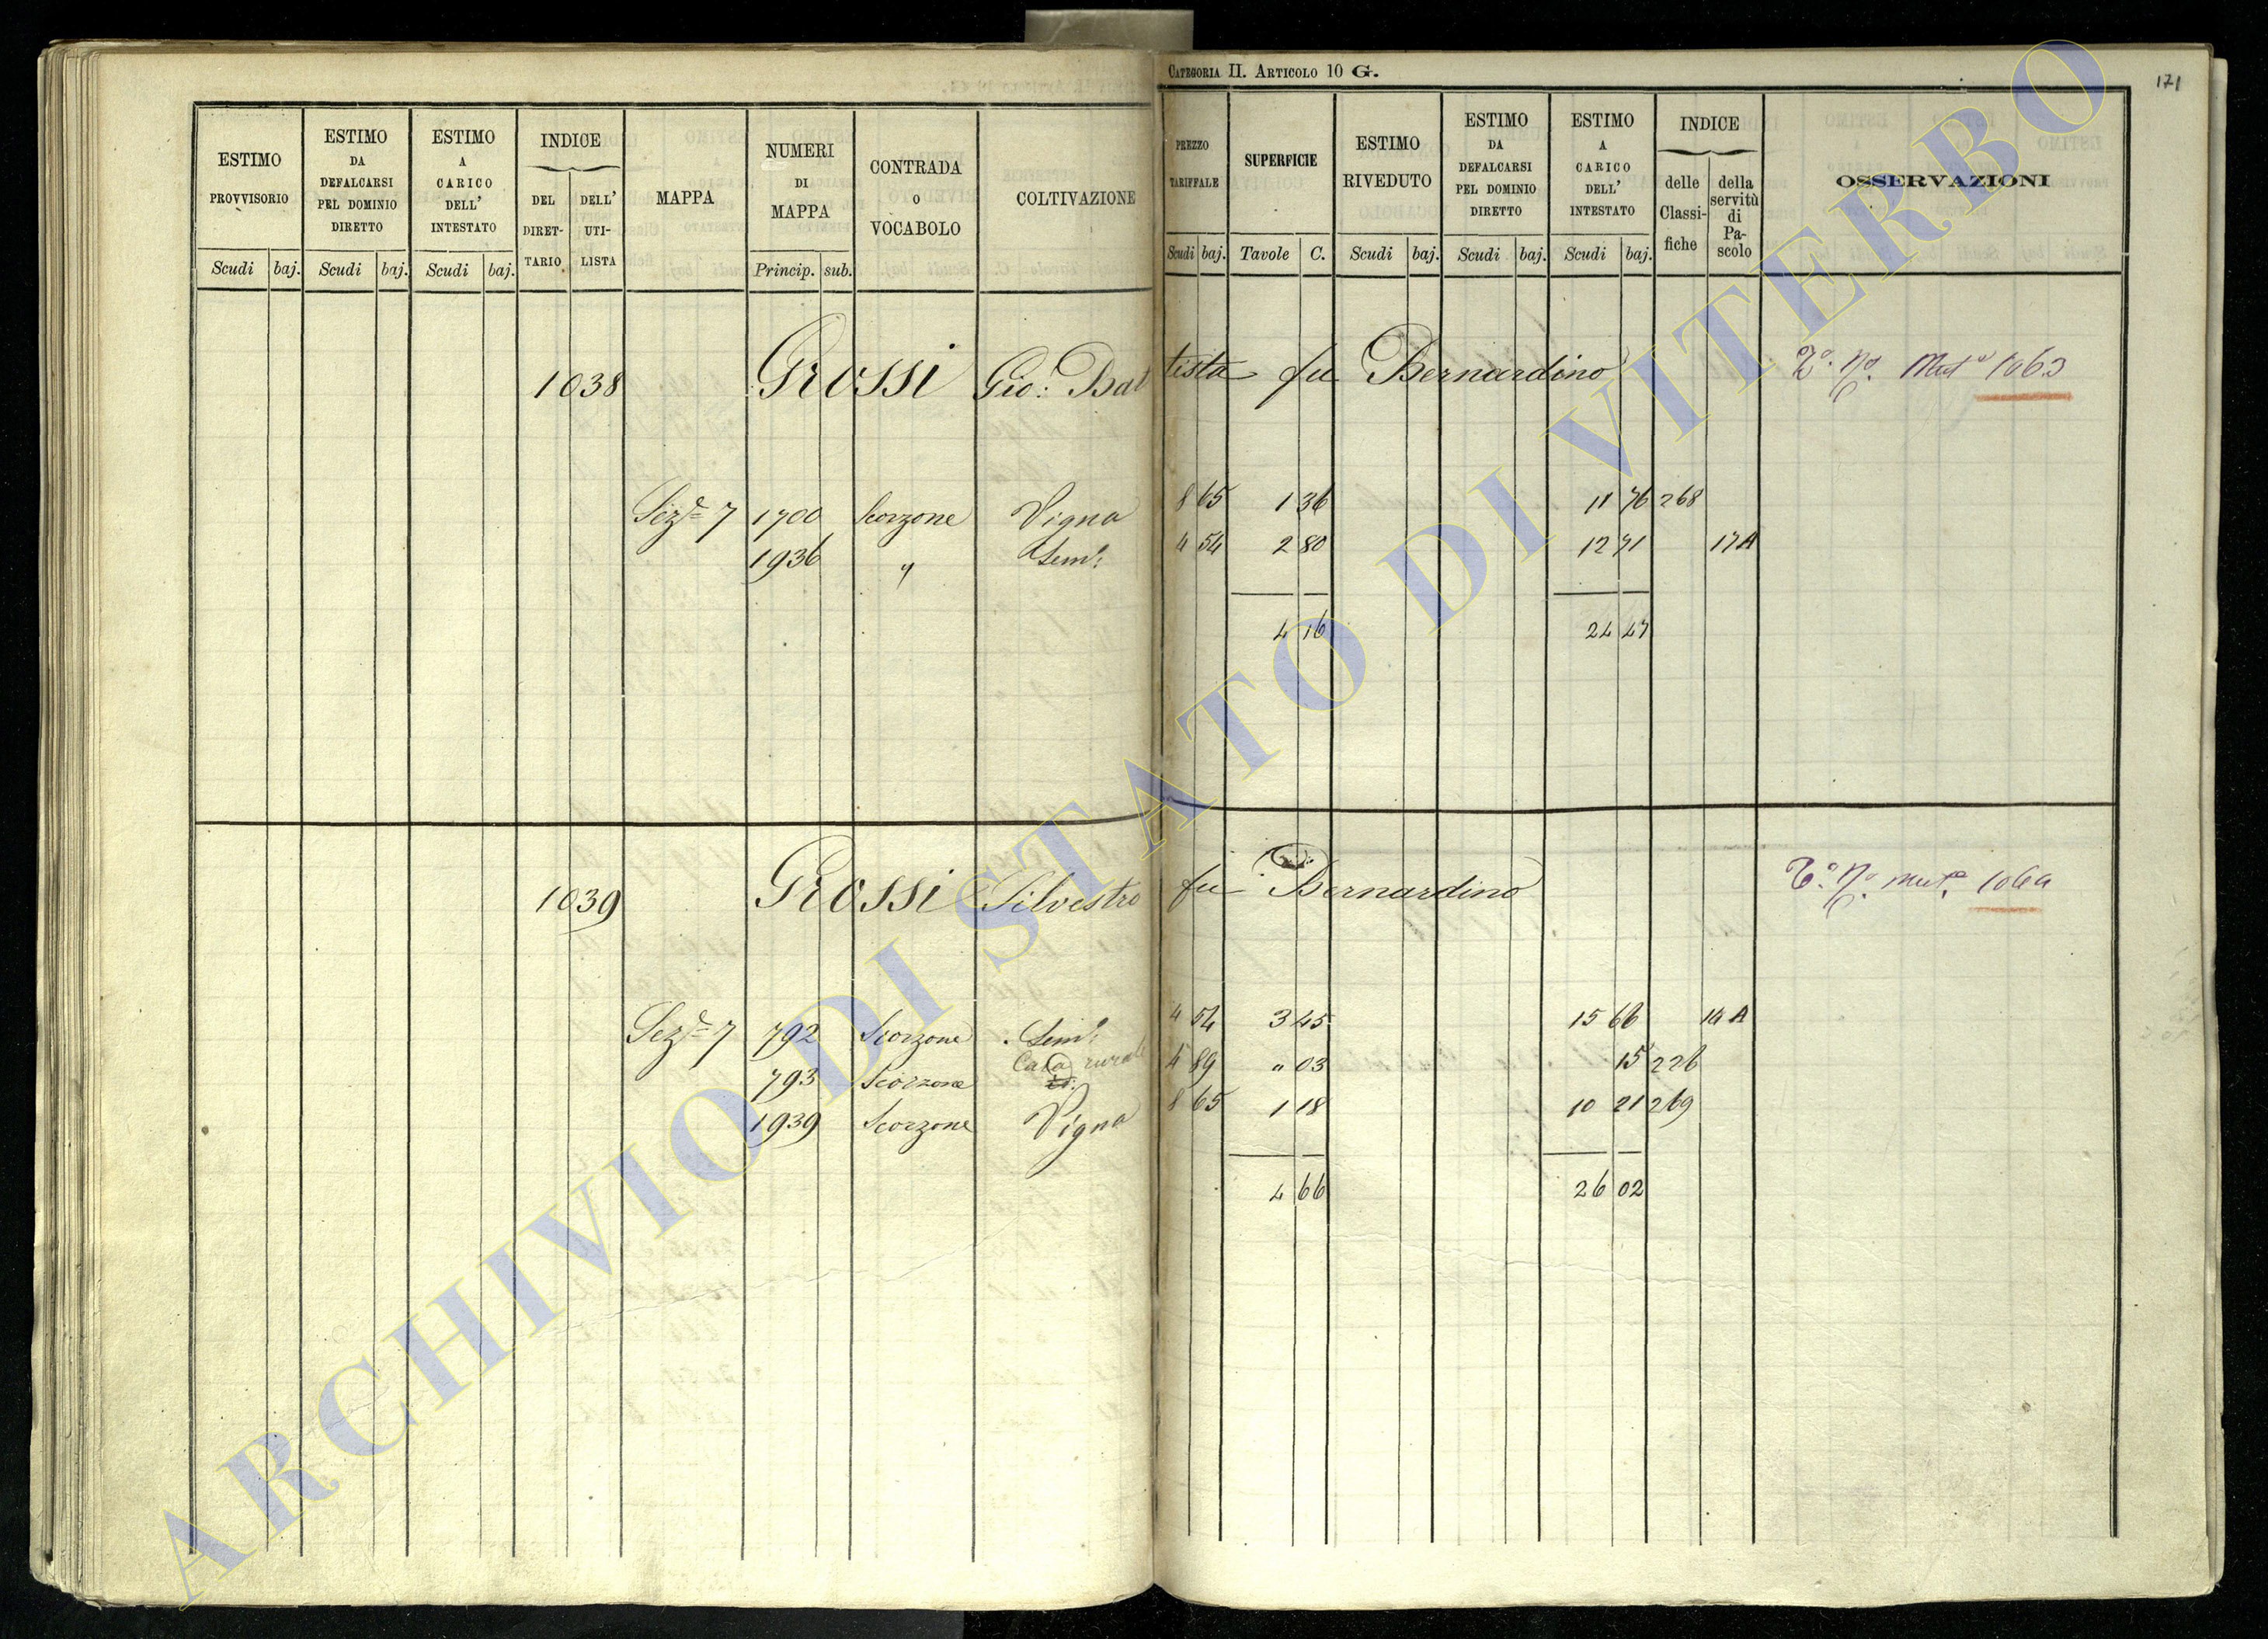 CATEGORIA II. ARTICOLO 10 G.
171
ESTIMO PROVVISORIO
Scudi baj.
ESTIMO DA DEFALCARSI PEL DOMINIO DIRETTO
Scudi baj.
ESTIMO A CARICO DELL' INTESTATO
Scudi baj.
INDICE
DEL DIRET-TARIO
DELL' UTI-LISTA
MAPPA
NUMERI DI MAPPA
Princip. sub.
CONTRADA O VOCABOLO
COLTIVAZIONE
PREZZO TARIFFALE
Scudi baj.
SUPERFICIE
Tavole C.
ESTIMO RIVEDUTO
Scudi baj.
ESTIMO DA DEFALCARSI PEL DOMINIO DIRETTO
Scudi baj.
ESTIMO A CARICO DELL' INTESTATO
Scudi baj.
INDICE
delle Classi-fiche
della servitù di Pa-scolo
OSSERVAZIONI
1038 Grossi Gio: Battista fu Bernardino 1063
Sez.e 7 1700 Scorzone Vigna 8 65 1 36 11 76 268
1936 " Sem.o 4 54 2 80 12 71 17A
4 16 24 47
1039 Grossi Silvestro fu Bernardino 1064
Sez.e 7 792 Scorzone Sem.o 4 54 3 45 15 66 14 A
793 Scorzone Casa rurale 4 89 " 03 15 226
1939 Scorzone Vigna 8 65 1 18 10 21 269
4 66 26 02
ARCHIVIO DI STATO DI VITERBO